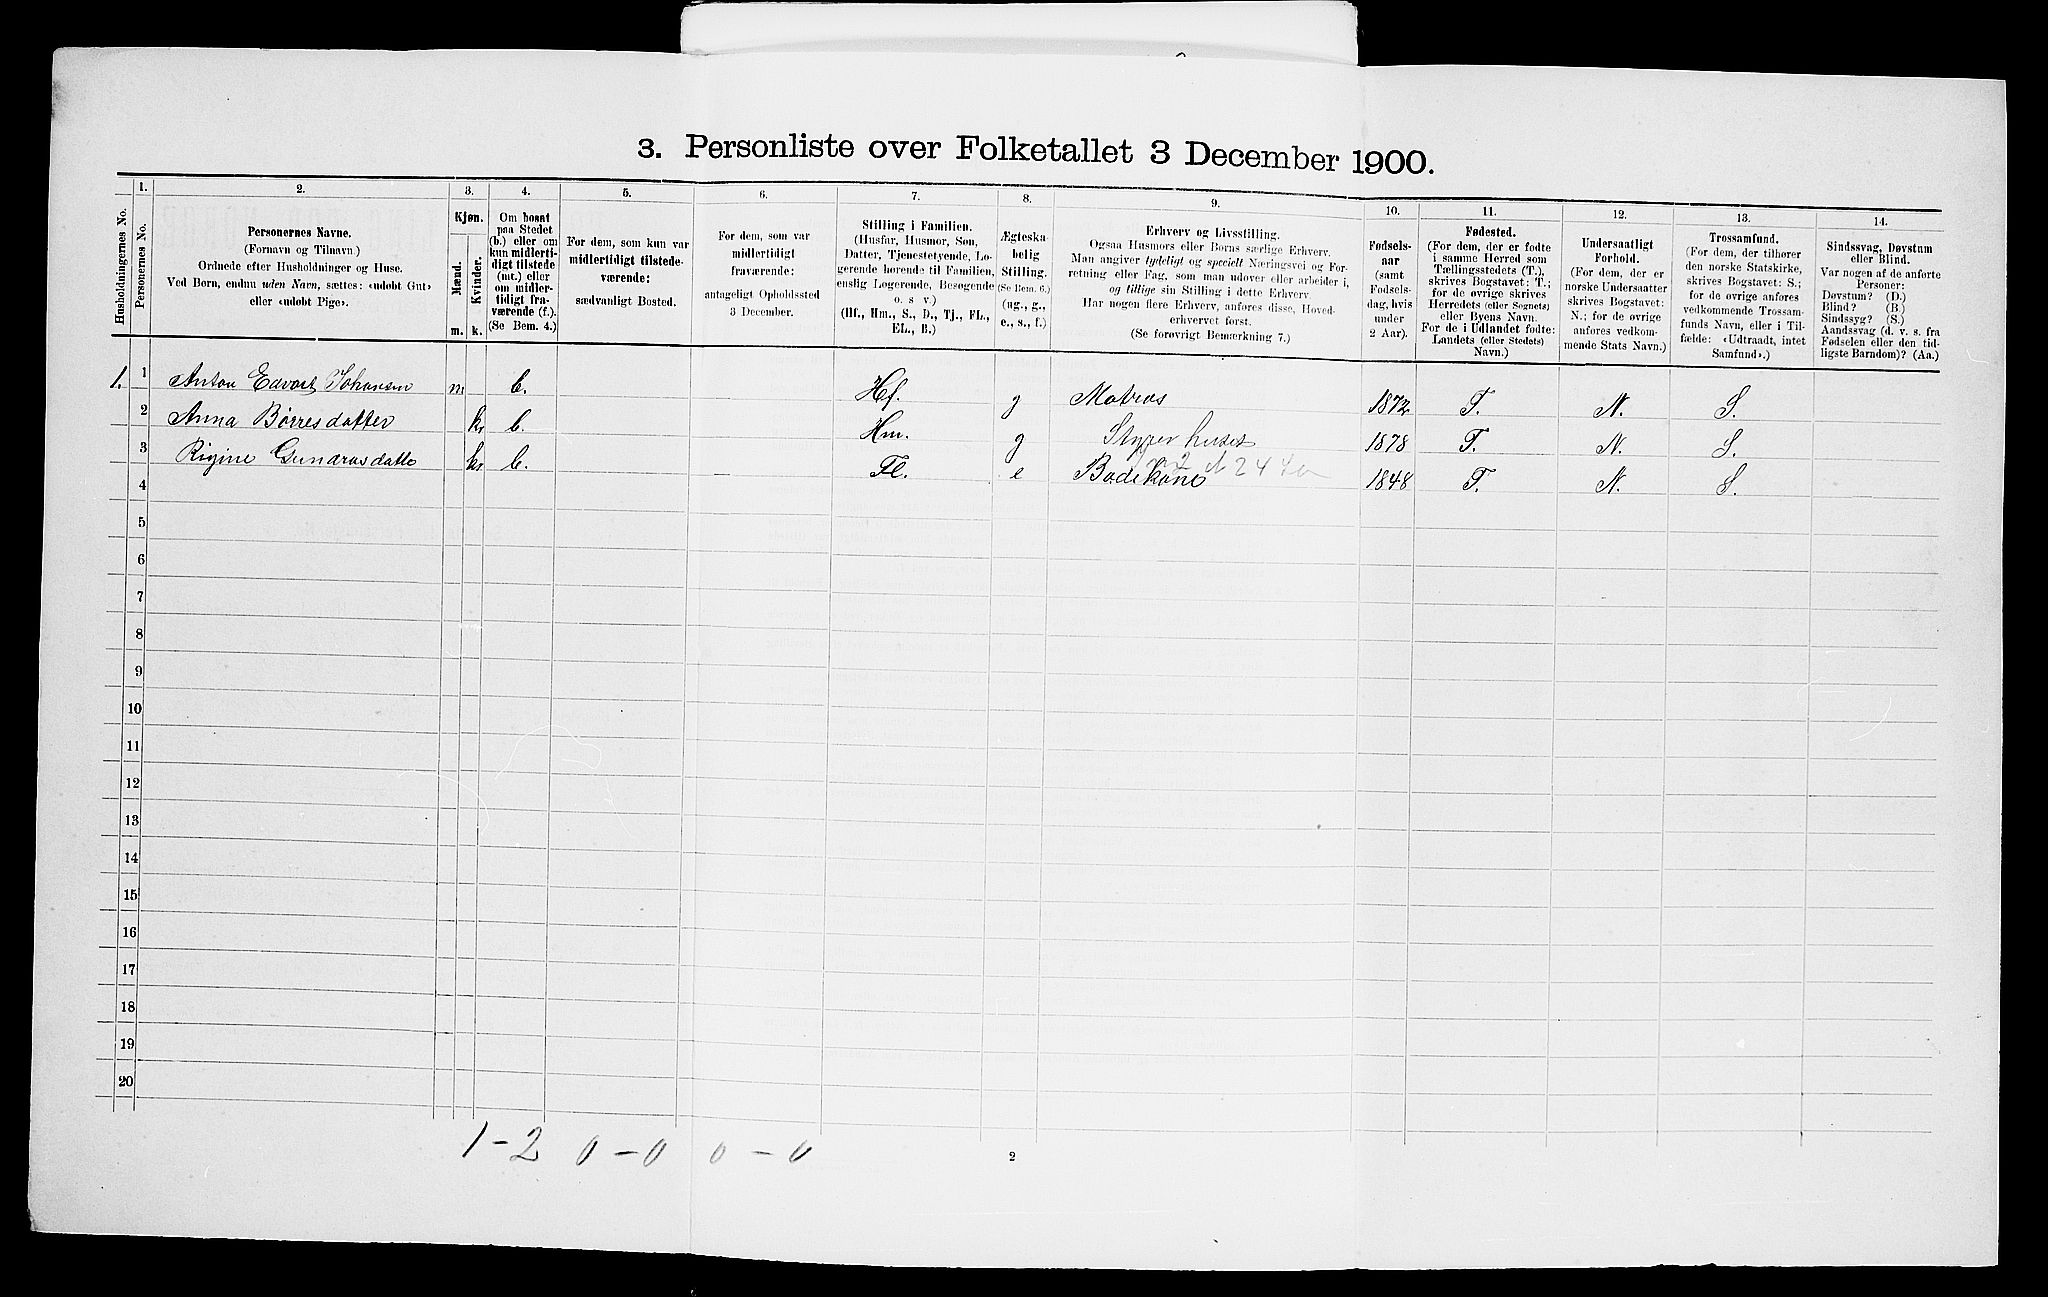 3. Personliste over Folketallet 3 December 1900.
1. 2. 3. 4. 5. 6. 7. 8. 9. 10. 11. 12. 13. 14.
Husholdningernes No.
Personernes No.
Personernes Navne.
(Fornavn og Tilnavn.)
Ordnede efter Husholdninger og Huse.
Ved Børn, endnu uden Navn, sættes: «udøbt Gut»
eller «udøbt Pige».
Kjøn.
Mænd.
Kvinder.
m. k.
Om bosat
paa Stedet
(b.) eller om
kun midlerti-
digt tilstede
(mt.) eller
om midler-
tidigt fra-
værende (f.).
(Se Bem. 4.)
For dem, som kun var
midlertidigt tilstede-
værende:
sædvanligt Bosted.
For dem, som var
midlertidigt
fraværende:
antageligt Opholdssted
3 December.
Stilling i Familien.
(Husfar, Husmor, Søn,
Datter, Tjenestetyende, Lo-
gerende hørende til Familien,
enslig Logerende, Besøgende
o. s v.)
(Hf., Hm., S., D., Tj., FL.,
EL., B.)
Ægteska-
belig
Stilling.
(Se Bem. 6.)
(ug., g.,
e., s., f.)
Erhverv og Livsstilling.
Ogsaa Husmors eller Børns særlige Erhverv.
Man angiver tydeligt og specielt Næringsvei og For-
retning eller Fag, som man udøver eller arbeider i,
og tillige sin Stilling i dette Erhverv.
Har nogen flere Erhverv, anføres disse, Hoved-
erhvervet først.
(Se forøvrigt Bemærkning 7.)
Fødsels-
aar
(samt
Fødsels-
dag, hvis
under
2 Aar).
Fødested.
(For dem, der er fødte
i samme Herred som
Tællingsstedets (T.),
skrives Bogstavet: T.;
for de øvrige skrives
Herredets (eller Sognets)
eller Byens Navn.
For de i Udlandet fødte:
Landets (eller Stedets)
Navn.)
Undersaatligt
Forhold.
(For dem, der er
norske Undersaatter
skrives Bogstavet:
N.; for de øvrige
anføres vedkom-
mende Stats Navn.)
Trossamfund.
(For dem, der tilhører
den norske Statskirke,
skrives Bogstavet: S.;
for de øvrige anføres
vedkommende Trossam-
funds Navn, eller i Til-
fælde: «Udtraadt, intet
Samfund».)
Sindssvag, Døvstum
eller Blind.
Var nogen af de anførte
Personer:
Døvstum? (D.)
Blind? (B.)
Sindssyg? (S.)
Aandssvag (d. v. s. fra
Fødselen eller den tid-
ligste Barndom)? (Aa.)
1. 1 Anton Edvart Johansen m b. Hf. g Matros 1872 T. N. S.
2 Anna Børresdatter k b. Hm. g Styrer huset 1878 T. N. S.
3 Rigine Gundrosdatte k b. Fl. e Badekone 1848 T. N. S.
4
5
6
7
8
9
10
11
12
13
14
15
16
17
18
19
20
1-2 0-0 0-0
2